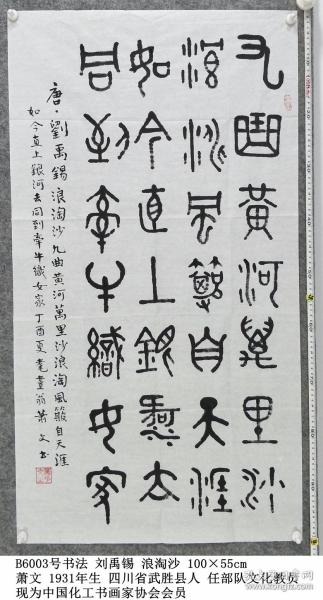 九曲黃河萬里沙
浪淘風簸自天涯
如今直上銀河去
同到牽牛織女家
唐·劉禹錫浪淘沙九曲黃河萬里沙浪淘風簸自天涯
如今直上銀河去同到牽牛織女家丁酉夏耄耋翁萧文书
B6003号书法 刘禹锡 浪淘沙 100×55cm
萧文 1931年生 四川省武胜县人 任部队文化教员
现为中国化工书画家协会会员